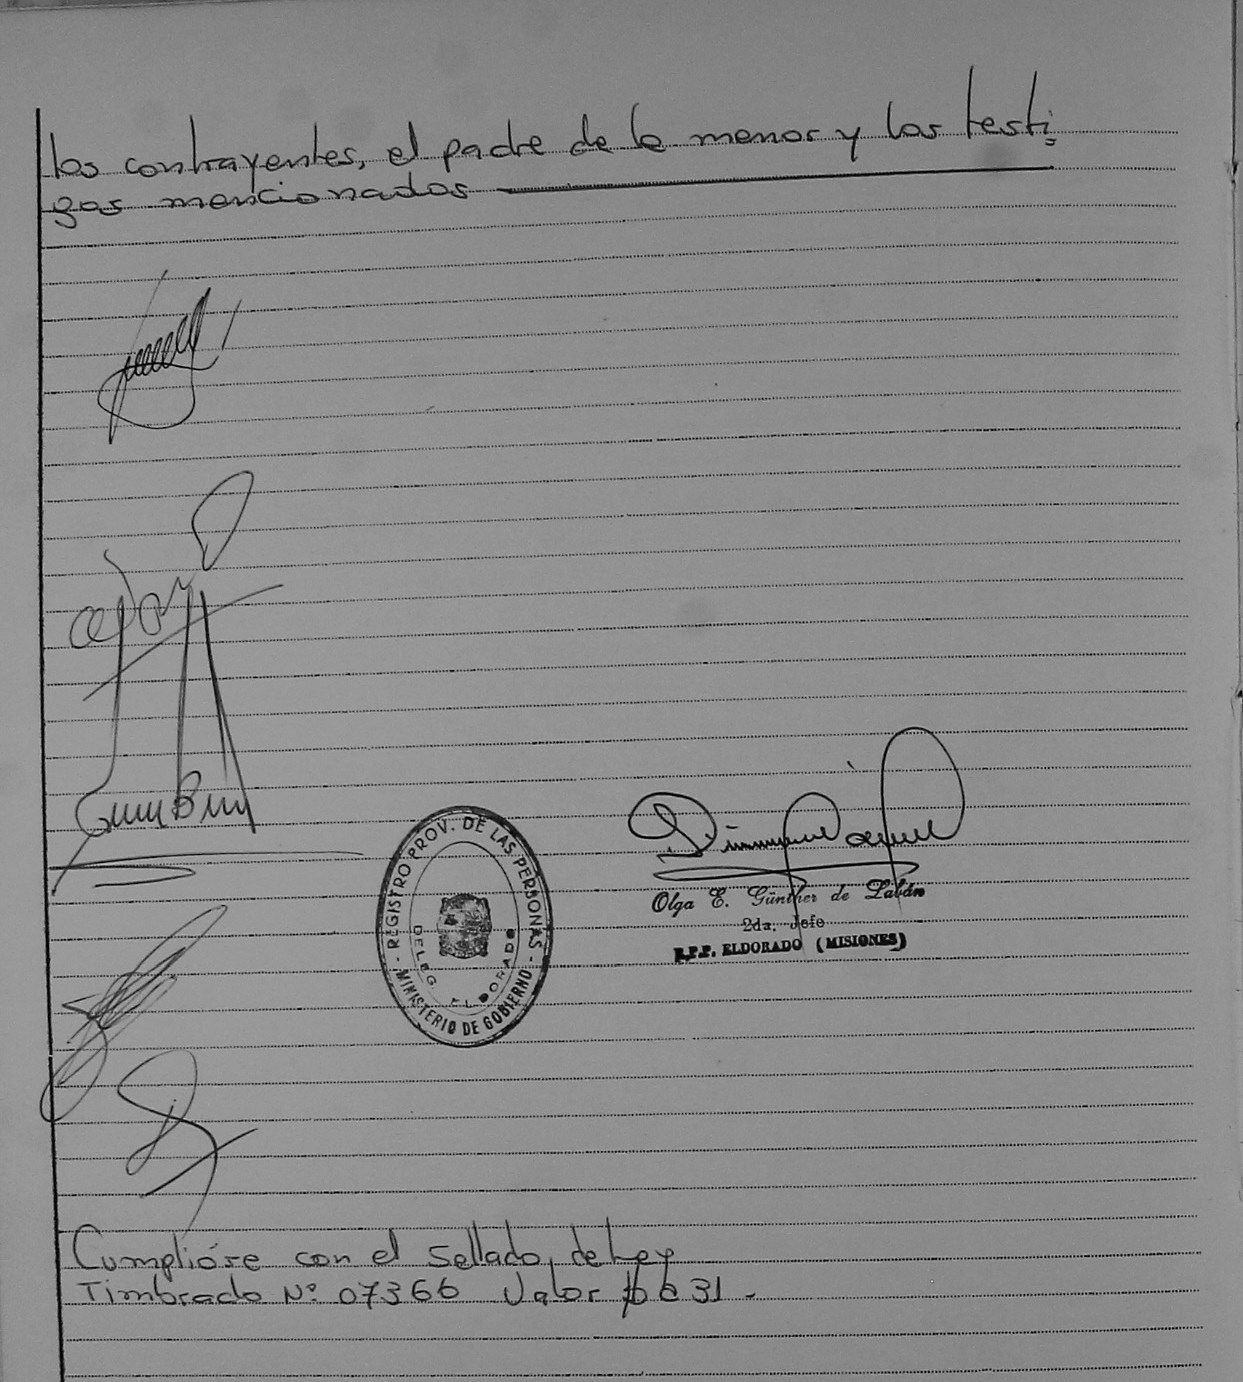 los contrayentes, el padre de la menor y los testi
gos mencionados
- REGISTRO PROV. DE LAS PERSONAS -
DELEG. ELDORADO
MINISTERIO DE GOBIERNO
Olga E. Günther de Labán
2da. Jefe
R.P.P. ELDORADO (MISIONES)
Cumplióse con el sellado de Ley
Timbrado Nº 07366 Valor